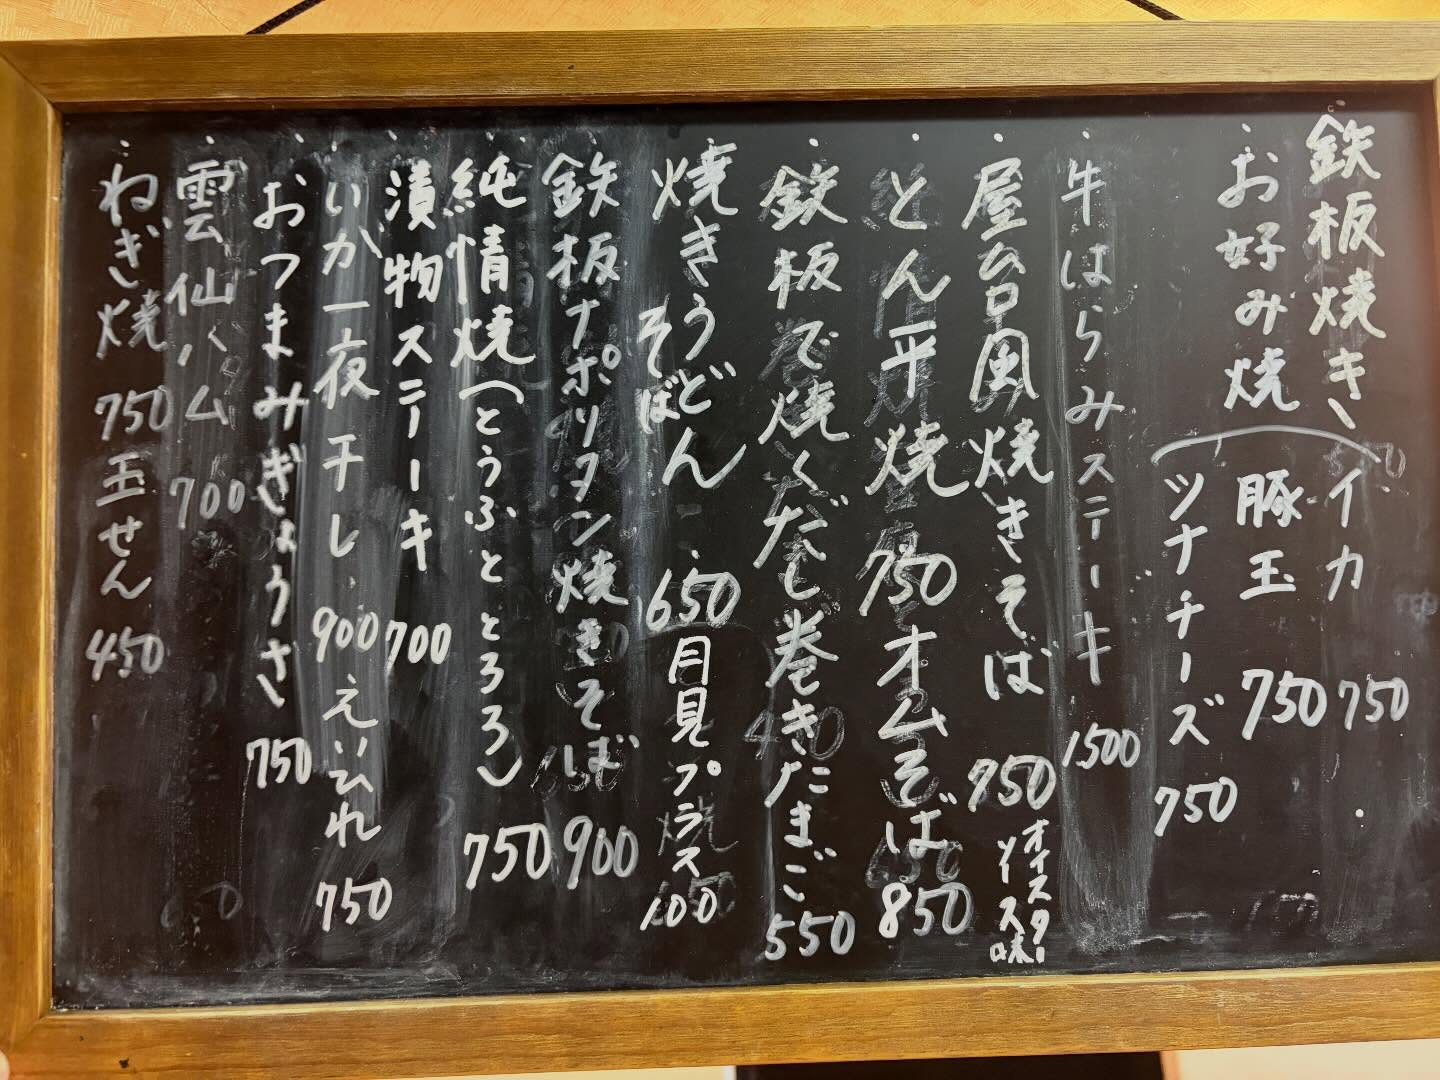 鉄板焼き
お好み焼
イカ 750
豚玉 750
ツナチーズ 750
牛はらみステーキ 1500
屋台風焼きそば 750 オイスターソース味
とん平焼 750 オムそば 850
鉄板で焼くだし巻きたまご 550
焼きうどん 650 月見プラス100
そば
鉄板ナポリタン焼きそば 900
純情焼(とうふととろろ) 750
漬物ステーキ 700
いか一夜干し 900 えいひれ 750
おつまみぎょうさ 750
雲仙ハム 700
ねぎ焼 750 玉せん 450